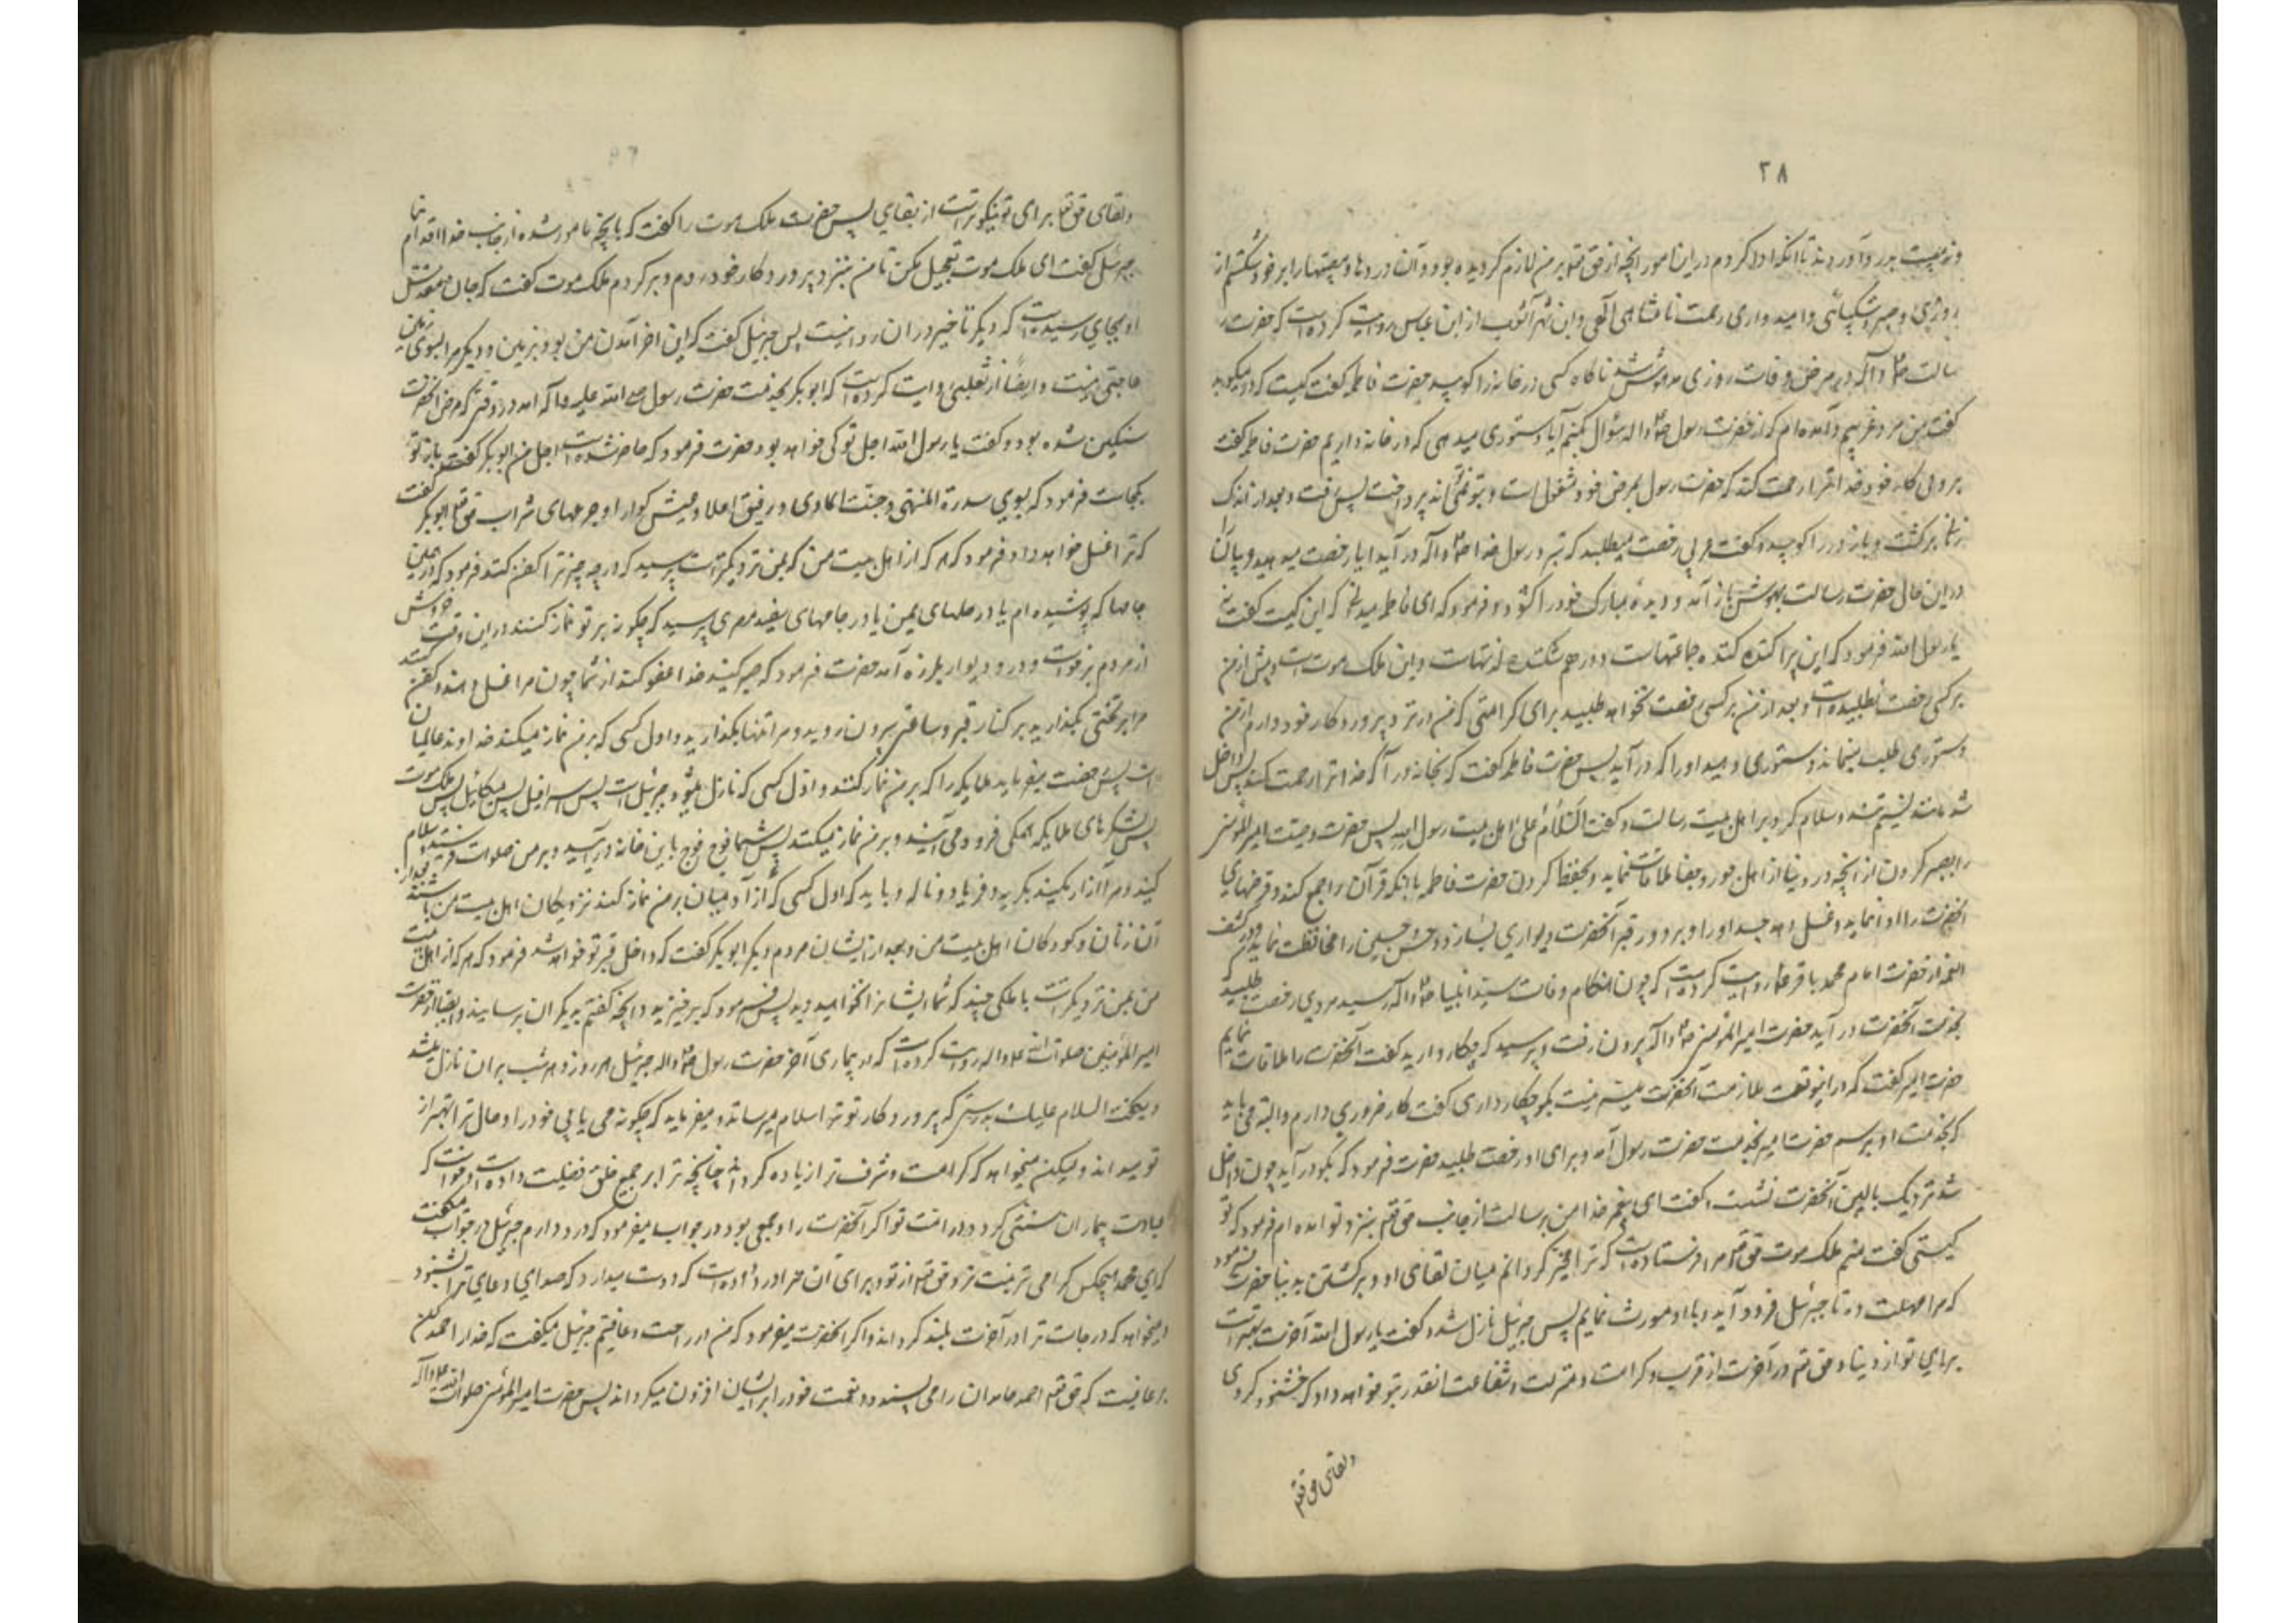 ۲۸
و مصیبت بدرد آوردند تا آنکه ادا کردم در این امور آنچه از حق تعالی بر من لازم گردیده بود و آن دردها و مصیبتها را بر خود شکستم از
روزی و صبر و شکیبائی و امیدواری رحمت نامتناهی الهی و ابن شهرآشوب از ابن عباس روایت کرده است که حضرت ر
سالت ص و آله در مرض وفات روزی مدهوش شد ناگاه کسی در خانه را کوبید حضرت فاطمه گفت کیست که در میکوبد
گفت من مرد غریبم و آمده ام که از حضرت رسول ص و اله سؤال بکنم آیا دستوری میدهی که در خانه دارایم حضرت فاطمه گفت
برو پی کار خود خدا ترا رحمت کند که حضرت رسول بمرض خود مشغول است و بتو نمیتواند پرداخت پس رفت و بعد از اندک
زمانی برگشت و باز در را کوبید و گفت غریبی رخصت میطلبد که بر رسول خدا ص و آله در آید ایا رخصت میدهید غریبان را
در این حال حضرت رسالت بهوش باز آمد و دیده مبارک خود را کشود و فرمود که ای فاطمه میدانی که این کیست گفت نه
یا رسول الله فرمود که این پراکنده کننده جماعتهاست و در هم شکننده لذتهاست و این ملک موت است و پیش از من
بر کسی رخصت نطلبیده است و بعد از من بر کسی رخصت نخواهد طلبید برای کرامتی که من در نزد پروردگار خود دارم از من
دستوری طلب مینماید دستوری دهید او را که در آید پس حضرت فاطمه گفت که بخانه در آ که خدا ترا رحمت کند پس داخل
شد مانند نسیم تند و سلام کرد بر اهل بیت رسالت و گفت السلام علی اهل بیت رسول الله پس حضرت وصیت امیر المؤمنین
را بصبر کردن از آنچه در دنیا از اهل جور و جفا ملاقات نماید و بحفظ کردن حضرت فاطمه با آنکه قرآن را جمع کند و قرضهای
آنحضرت را ادا نماید و غسل دهد جسد او را و بر دور قبر آنحضرت دیواری بسازد و حسن و حسین را محافظت نماید و در کشف
الغمه از حضرت امام محمد باقر ع روایت کرده است که چون هنگام وفات سید انبیا ص و آله رسید مردی رخصت طلبید که
بخدمت آنحضرت در آید حضرت امیر المؤمنین ص و اله بیرون رفت و پرسید که چکار دارید گفت آنحضرت را ملاقات نمایم
حضرت امیر گفت که در اینوقت ملازمت آنحضرت میسر نیست بگو چکار داری گفت کار ضروری دارم و البته می باید
که بخدمت او برسم حضرت امیر بخدمت حضرت رسول آمد و برای او رخصت طلبید حضرت فرمود که بگو در آید چون داخل
شد نزدیک بالین آنحضرت نشست و گفت ای پیغمبر خدا من برسالت از جانب حق تعالی بنزد تو امده ام فرمود که تو
کیستی گفت منم ملک موت حق تعالی مرا فرستاده است که ترا مخیر گردانم میان لقای او و برگشتن بدنیا حضرت فرمود
که مرا مهلت ده تا جبرئیل فرود آید و با او مشورت نمایم پس جبرئیل نازل شد و گفت یا رسول الله آخرت بهتر است
برای تو از دنیا و حق تعالی در آخرت از قرب و کرامت و منزلت و شفاعت انقدر بتو خواهد داد که خشنود گردی
و لقای حق تعالی
و لقای حق تعالی برای تو نیکوتر است از بقای پس حضرت ملک موت را گفت که بآنچه مامور شده از جانب خدا اقدام نما
جبرئیل گفت ای ملک موت تعجیل مکن تا من بنزد پروردگار خود روم و برگردم ملک موت گفت که جان مقدس
او بجایی رسیده است که دیگر تاخیر در ان روا نیست پس جبرئیل گفت که این اخر آمدن من بود بزمین و دیگر مرا بسوی زمین
حاجتی نیست و ایضا از ثعلبی روایت کرده است که ابوبکر بخدمت حضرت رسول صلی الله علیه و آله آمد در وقتی که مرض آنحضرت
سنگین شده بود و گفت یا رسول الله اجل تو کی خواهد بود حضرت فرمود که حاضر شده است اجل من ابوبکر گفت بازگشت تو
بکجاست فرمود که بسوی سدرة المنتهی و جنت الماوی و رفیق اعلا و عیش گوارا و جرعهای شراب حق تعالی ابوبکر گفت
که ترا غسل خواهد داد فرمود که هر که از اهل بیت من که بمن نزدیکتر است پرسید که در چه چیز ترا کفن کنند فرمود که در این
جامها که پوشیده ام یا در حلهای یمن یا در جامهای سفید مصری پرسید که چگونه بر تو نماز کنند در این وقت خروش
از مردم برخواست و در و دیوار بلرزه آمد حضرت فرمود که صبر کنید خدا عفو کند از شما چون مرا غسل دهند و کفن کنند
مرا بر تختی بگذارید بر کنار قبر و ساعتی بیرون روید و مرا تنها بگذارید و اول کسی که بر من نماز میکند خداوند عالمیان
است پس رخصت میفرماید ملایکه را که بر من نماز کنند و اول کسی که نازل میشود جبرئیل است پس اسرافیل پس میکائیل پس ملک موت
پس لشکرهای ملایکه همگی فرود می آیند و بر من نماز میکنند پس شما فوج فوج باین خانه در آیید و بر من صلوات فرستید و سلام
کنید و مرا آزار مکنید بگریه و فریاد و ناله و باید که اول کسی که از آدمیان بر من نماز کند نزدیکان اهل بیت من باشند بعد از
آن زنان و کودکان اهل بیت من و بعد از ایشان مردم دیگر ابوبکر گفت که داخل قبر تو خواهد شد فرمود که هر که از اهل بیت
من بمن نزدیکتر است با ملکی چند که شما ایشان را نخواهید دید پس فرمود که برخیزید و آنچه گفتم بدیگران برسانید و ایضا از حضرت
امیر المؤمنین صلوات الله علیه و اله روایت کرده است که در بیماری آخر حضرت رسول ص و اله جبرئیل هر روز و هر شب بر ان نازل میشد
و میگفت السلام علیک بدرستی که پروردگار تو ترا سلام میرساند و میفرماید که چگونه می یابی خود را و حال ترا بهتر از
تو میداند ولیکن میخواهد که کرامت و شرف ترا زیاده گرداند چنانچه ترا بر جمیع خلق فضیلت داده است و خواست که
عیادت بیماران سنتی گردد در امت تو اگر آنحضرت را وجعی بود در جواب میفرمود که درد دارم جبرئیل در جواب میگفت
که ای محمد هیچکس گرامی تر نیست نزد حق تعالی از تو و برای آن ترا درد داده است که دوست میدارد که صدای دعای ترا بشنود
و میخواهد که درجات ترا در آخرت بلند گرداند و اگر آنحضرت میفرمود که من در راحت و عافیتم جبرئیل میگفت که خدا را حمد کن
بر عافیت که حق تعالی حمد حامدان را می پسندد و نعمت خود را بر ایشان افزون میگرداند پس حضرت امیر المؤمنین صلوات الله علیه و آله